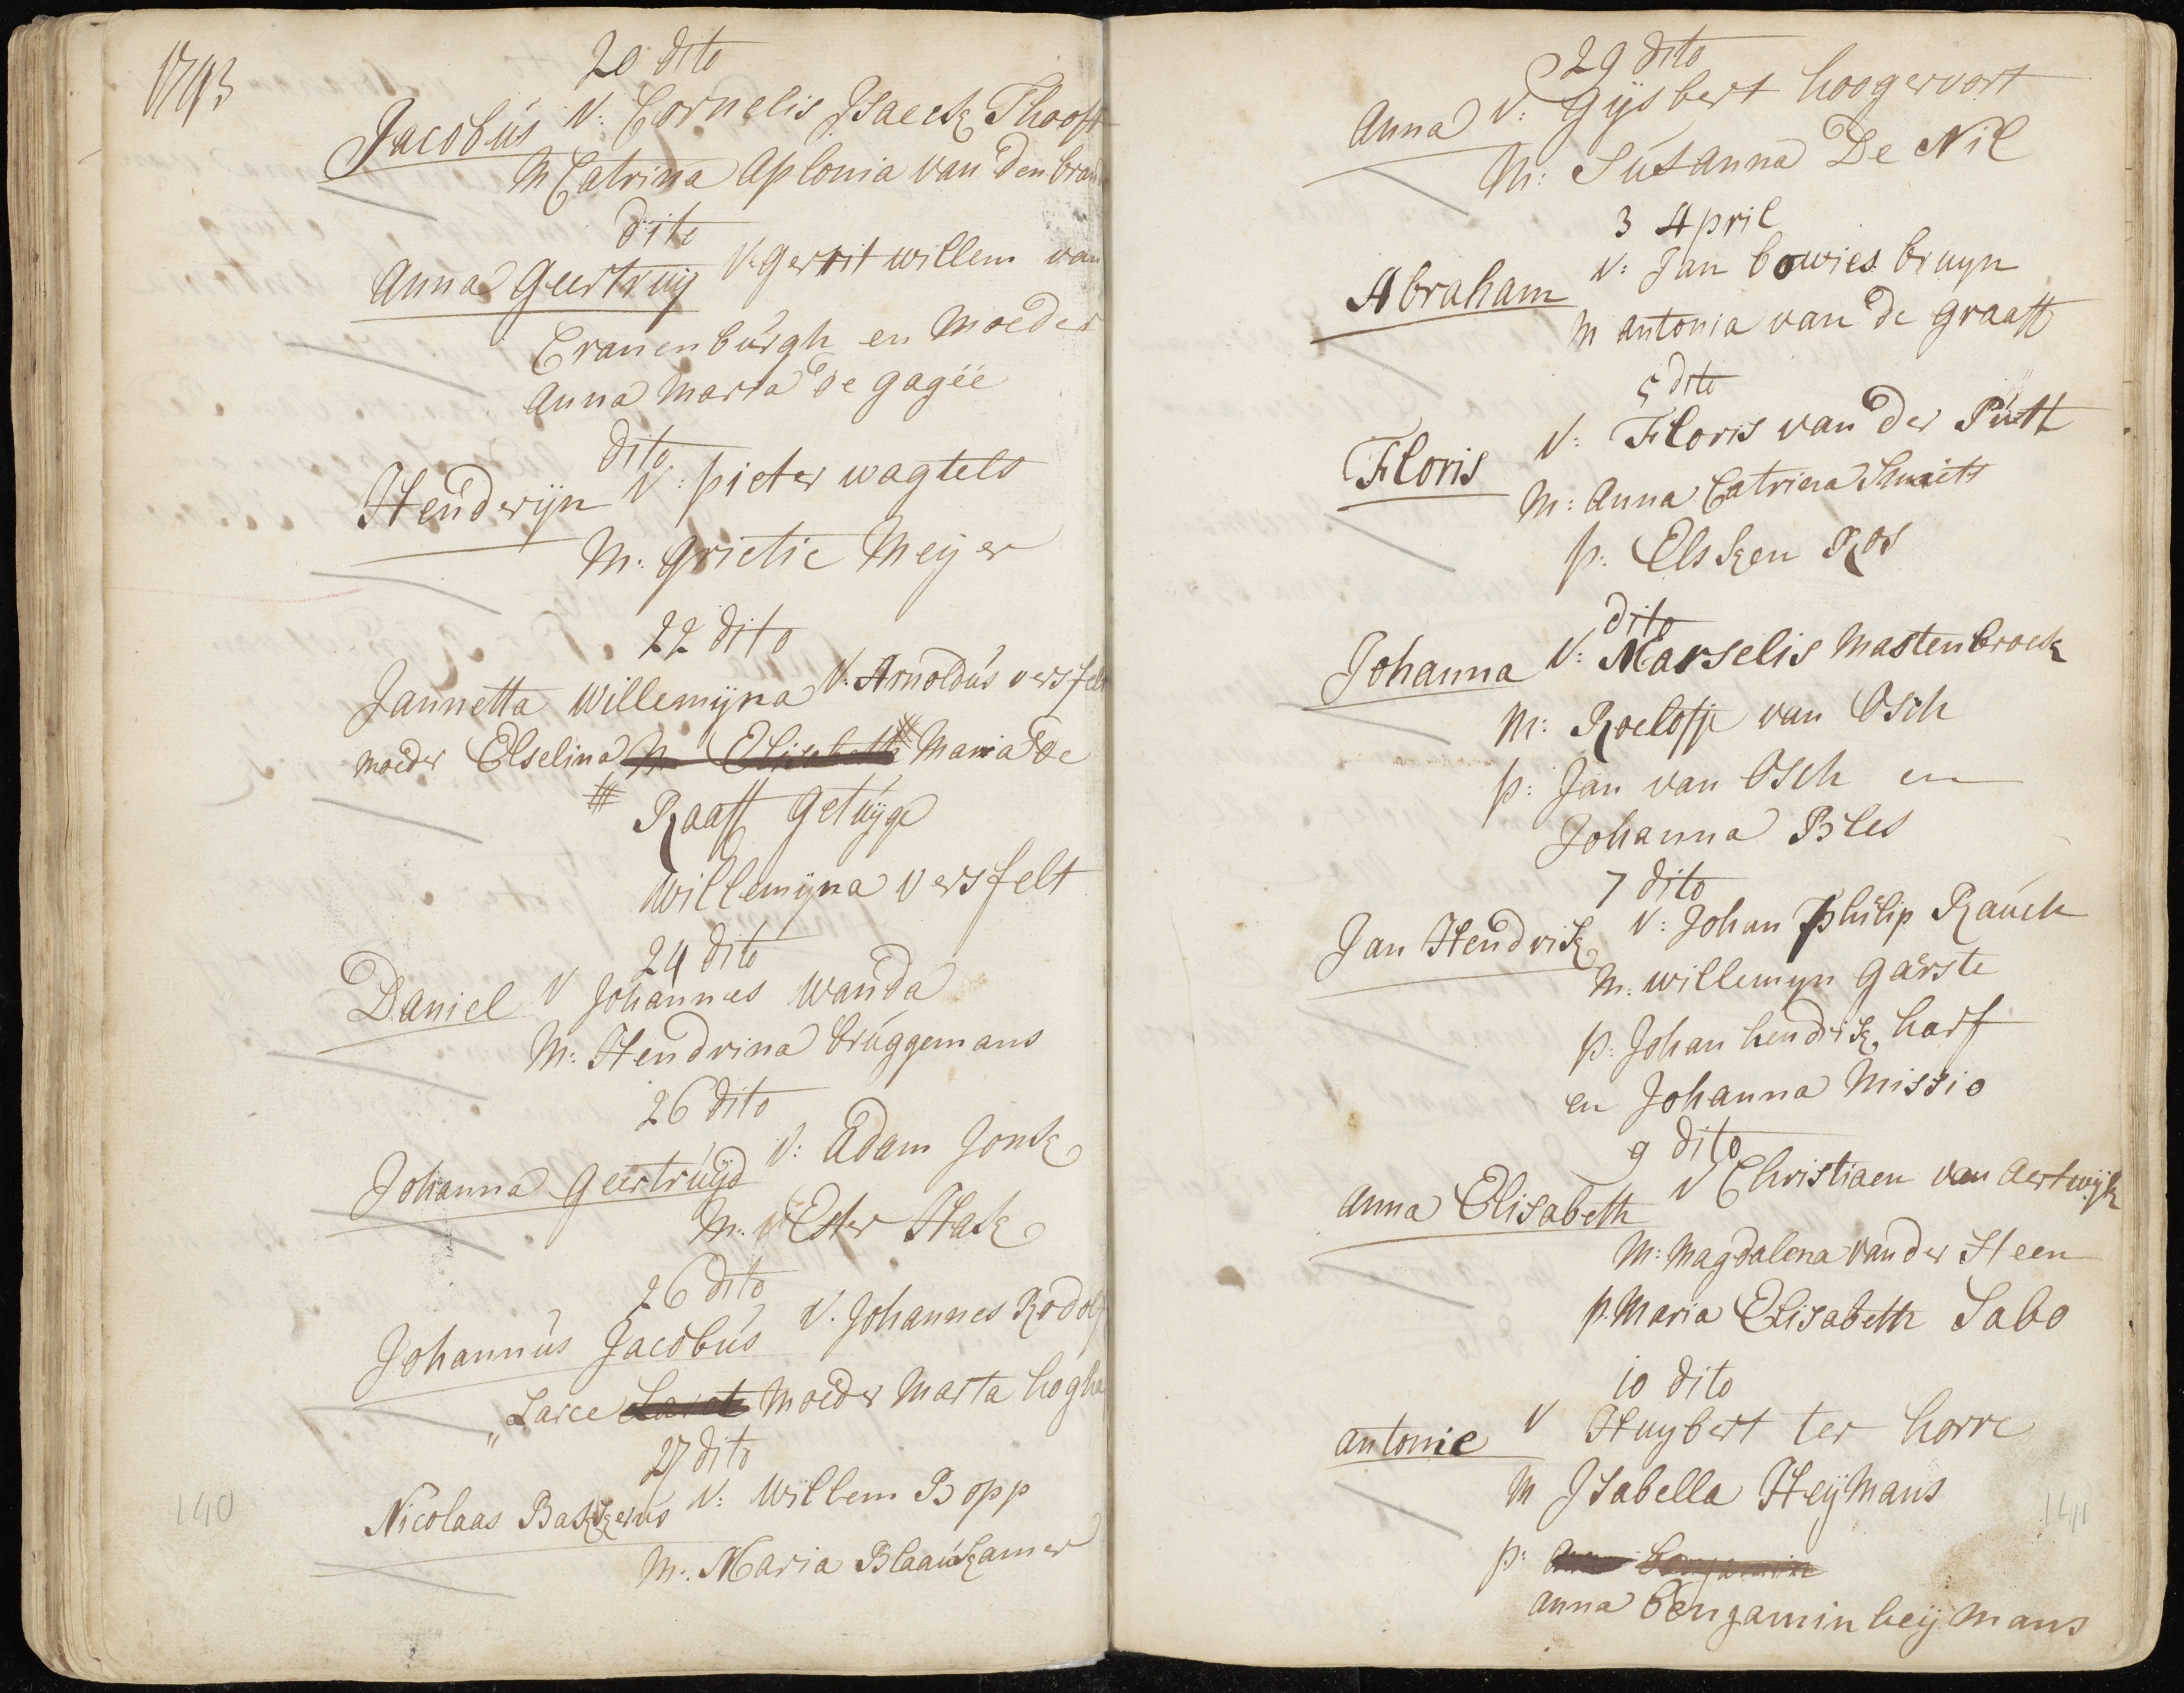 1793
20 dito
Jacobus V: Cornelis Isaeck Thooft
M Catrina Aplonia van den bran
dito
Anna Geertruy V: gerrit willem van
Cranenburgh en Moeder
Anna Maria de gagëe
dito
Hendrijn V: pieter wagtels
M: grietie Meijer
22 dito
Jannetta Willemijna V: Arnoldus versfelt
moeder Elselina Maria de
Raaff getuijge
willemijna versfelt
24 dito
Daniel V Johannes Wanda
M: Hendrina bruggemans
26 dito
Johanna Geertruijd V: Adam Jonk
M: Ester Hask
26 dito
Johannus Jacobus V. Johannes Rodolf
Larce Moeder Marta hogha
27 dito
Nicolaas Bakkerus V: Willem Bopp
M: Maria Blaaukamer
140
29 dito
Anna V: Gijsbert hoogervort
M: Susanna De Nil
3 April
Abraham V: Jan bowies bruyn
M antonia van de graaff
5 dito
Floris V: Floris van der Putt
M: Anna Catrina Smiets
p: Elsken Ros
dito
Johanna V: Marselis Mastenbroek
M: Roelofje van Osch
p: Jan van Osch en
Johanna Bles
7 dito
Jan Hendrik V: Johan Philip Rauch
M: willemyn Garste
p: Johan hendrik harf
en Johanna Missio
9 dito
Anna Elisabeth V Christiaen van Aertwijk
M: Magdalena van der Steen
p. Maria Elisabeth Sabo
10 dito
Antonie V Huybert ter horre
M Isabella Heijmans
141
p:
anna bengamin heijmans